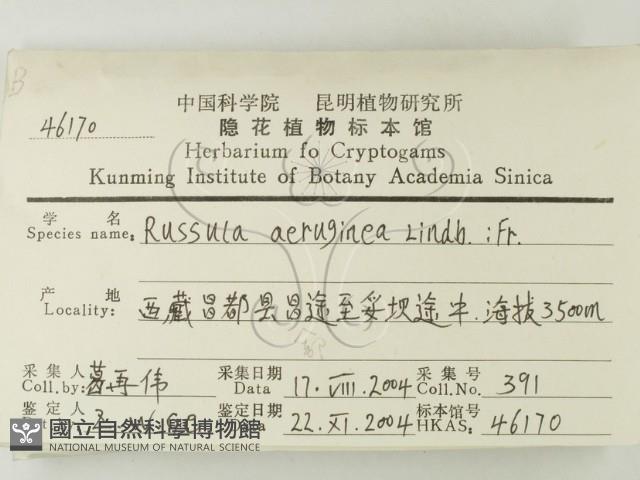 B
中国科学院 昆明植物研究所
46170
隐花植物标本馆
Herbarium fo Cryptogams
Kunming Institute of Botany Academia Sinica
学 名
Species name: Russula aeruginea Lindb. : Fr.
产 地
Locality: 西藏昌都县昌都至妥坝途中. 海拔3500m
采集人 葛再伟 采集日期 17. VIII. 2004 采集号 391
Coll.by: Data Coll.No.
鉴定人 鉴定日期 22. XI. 2004 标本馆号 46170
HKAS:
國立自然科學博物館
NATIONAL MUSEUM OF NATURAL SCIENCE